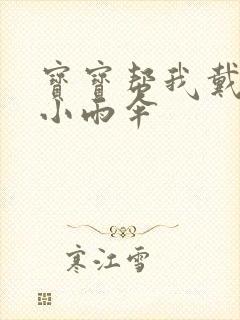 寶寶帮我戴
小雨伞
寒江雪